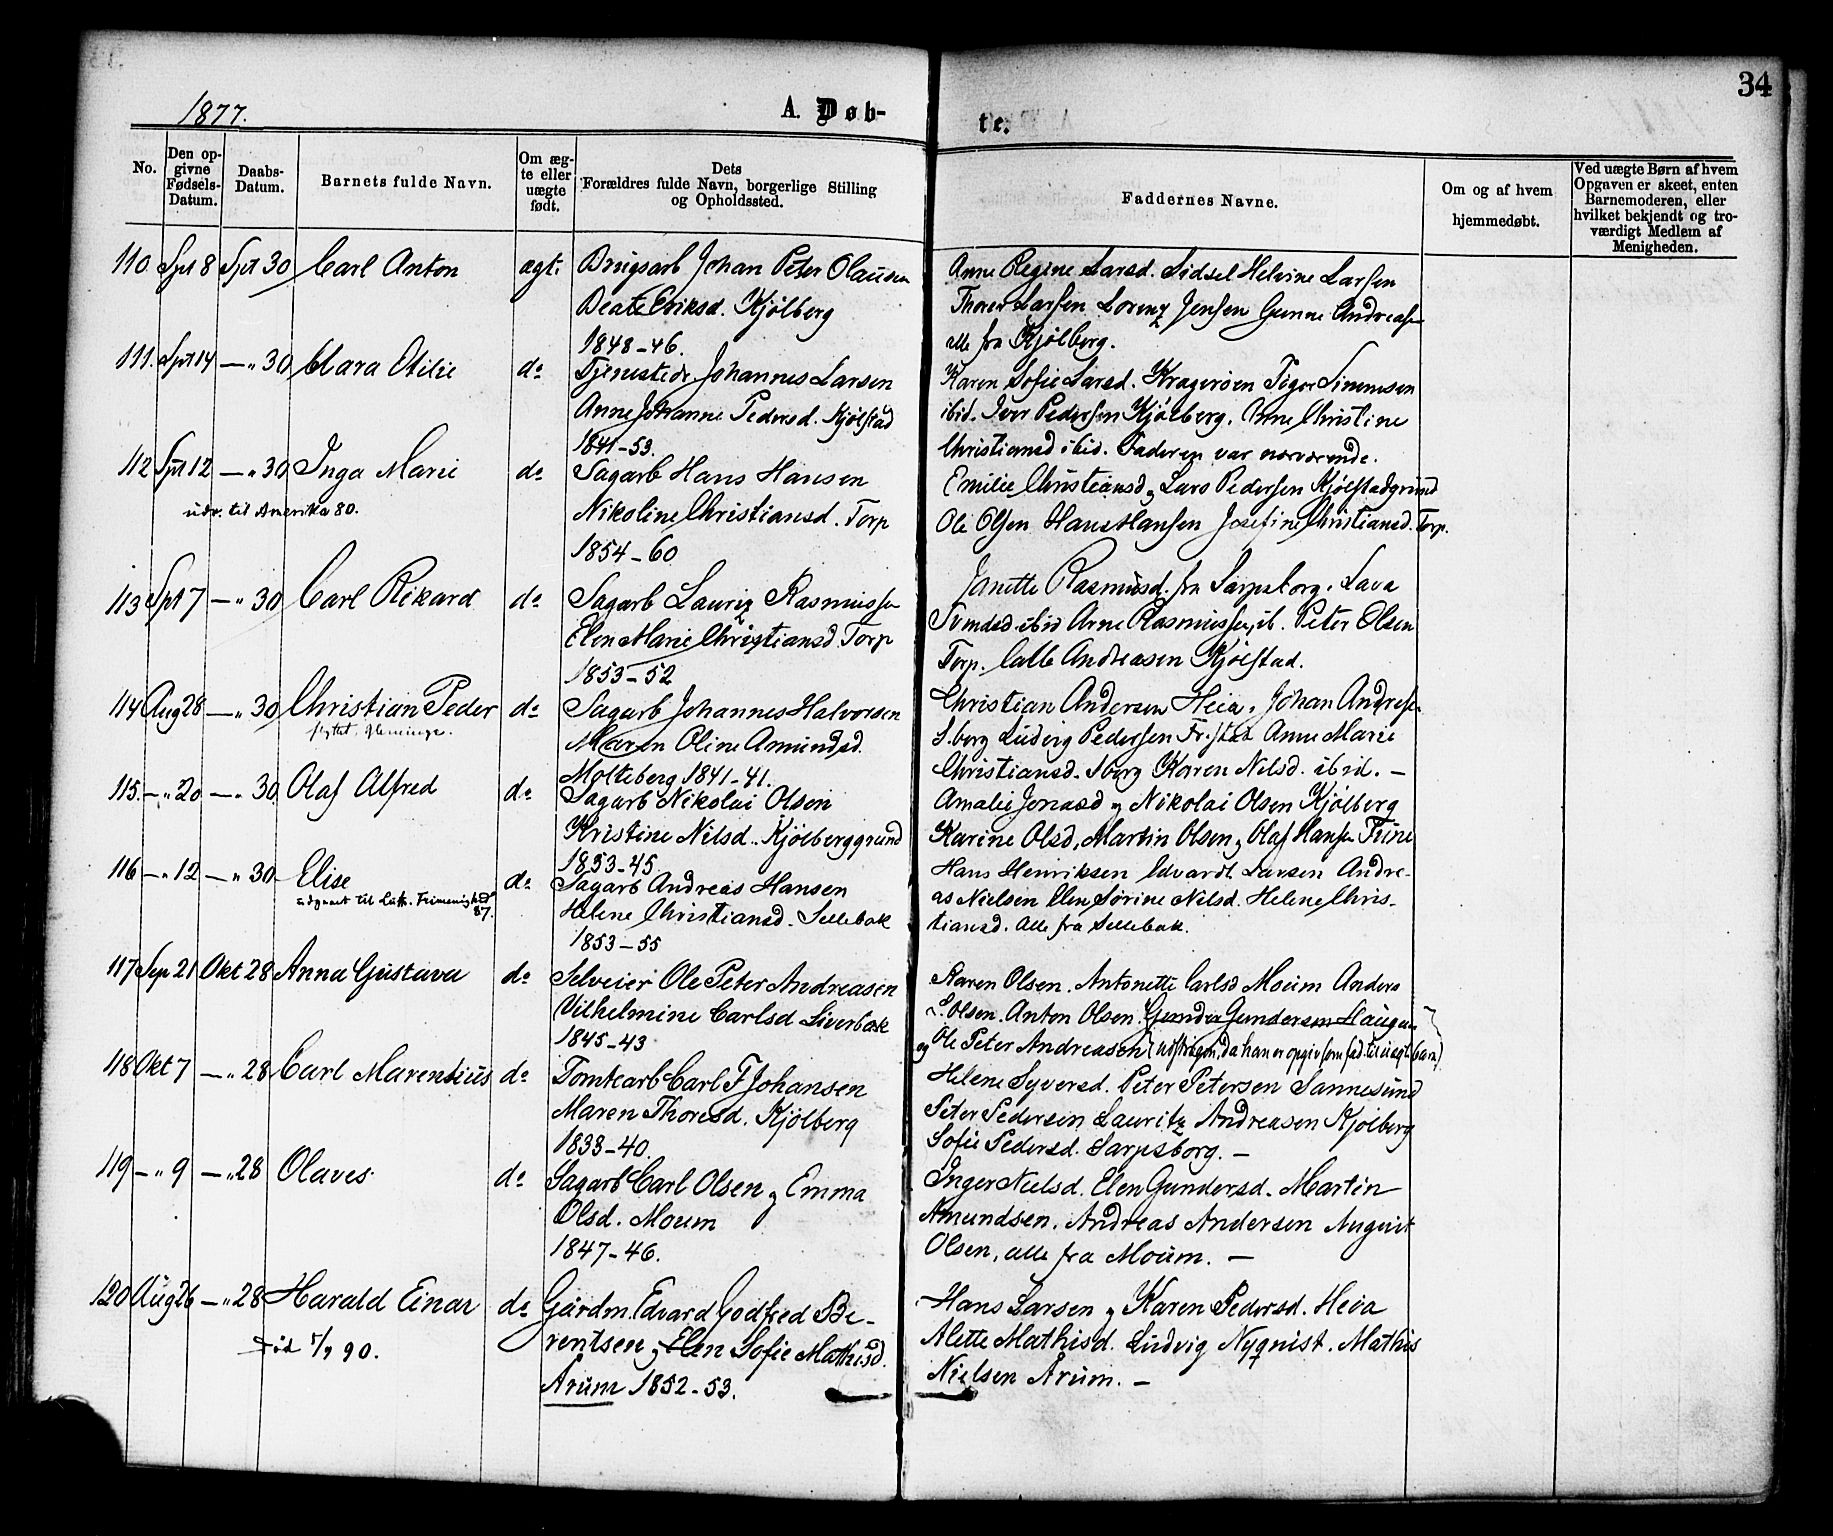 34
1877.
A. Døb-
te.
No.
Den op-
givne
Fødsels-
Datum.
Daabs-
Datum.
Barnets fulde Navn.
Om æg-
te eller
uægte
født.
Dets
Forældres fulde Navn, borgerlige Stilling
og Opholdssted.
Faddernes Navne.
Om og af hvem
hjemmedøbt.
Ved uægte Børn af hvem
Opgaven er skeet, enten
Barnemoderen, eller
hvilket bekjendt og tro-
værdigt Medlem af
Menigheden.
110 Spt 8 Spt 30 Carl Anton ægt: Brugsarb Johan Peter Olausen
Beate Eriksd. Kjølberg
1848-46.
Anne Regine Larsd. Lidsel Helvine Larsen
Thorer Larsen Lorenz Jensen Gunne Andreasen
alle fra Kjølberg.
111. Spt 14 — " 30 Clara Otilie do Tjenestedr Johannes Larsen
Anne Johanne Pedersd. Kjølstad
1841-53.
Karen Sofie Larsd. Kragerøen Siger Simensen
ibid. Iver Pedersen Kjølberg. Anne Christine
Christiansd ibid. Faderen var nærværende.
112 Spt 12 — " 30 Inga Marie do Sagarb Hans Hansen
udv. til Amerika 80.
Nikoline Christiansd. Torp
1854-60
Emilie Christiansd og Lars Pedersen Kjølstadgrund
Ole Olsen Hans Hansen Josefine Christiansd. Torp.
113 Spt 7 — " 30 Carl Rikard do Sagarb Lauriz Rasmussen
Elen Marie Christiansd. Torp
1853-52
Janette Rasmusd. fra Sarpsborg. Lava
Svendsd ibid Arne Rasmussen ib. Peter Olsen
Torp. Calle Andreasen Kjølstad.
114 Aug 28 — " 30 Christian Peder do Sagarb Johannes Halvorsen
flyttet Glemminge.
Maren Oline Amundsd.
Molteberg 1841-41.
Christian Andersen Heia. Johan Andresen
S.borg Ludvig Pedersen Fr.stad Anne Marie
Christiansd. Sborg Karen Nilsd. ibid. —
115. — " 20 — " 30 Olaf Alfred do Sagarb Nikolai Olsen
Kristine Nilsd. Kjølberggrund
1853-45.
Amalie Jonasd og Nikolai Olsen Kjølberg
Karine Olsd, Martin Olsen og Olaf Hansen Trine
116 — " 12 — " 30 Elise do Sagarb Andreas Hansen
udgaaet til Luth. Frimenighed
87.
Helene Christiansd. Sellebak
1853-55
Hans Henriksen Edvardt Larsen Andre-
as Nielsen Elen Sørine Nilsd. Helene Chris-
tiansd. Alle fra Sellebak.
117 Sep 21 Okt 28 Anna Gustava do Selveier Ole Peter Andreasen
Vilhelmine Carlsd Liverbak
1845-43
Karen Olsen. Antonette Carlsd Moum Anders
L. Olsen. Anton Olsen. Gunder Gundersen Haugen
og Ole Peter Andreasen (udstrøgen, da han er opgiv. som fad. til uægt. barn)
118 Okt 7 — " 28 Carl Marensius do Tomtearb Carl F Johansen
Maren Thoresd. Kjølberg
1833-40.
Helene Syversd. Peter Petersen Sannesund
Peter Pedersen Lauritz Andreasen Kjølberg
Sofie Pedersd. Sarpsborg. —
119 — " 9 — " 28 Olaves. do Sagarb Carl Olsen og Emma
Olsd. Moum
1847-46.
Inger Nielsd. Elen Gundersd. Martin
Amundsen. Andreas Andersen August
Olsen, alle fra Moum. —
120 Aug 26 — " 28 Harald Einar do Gårdm. Edvard Godfred Be-
død 7/9 90.
rentsen og Elen Sofie Mathisd.
Årum 1852-53.
Hans Larsen og Karen Pedersd. Heia
Alette Mathisd. Ludvig Nyqvist. Mathis
Nielsen Årum. —